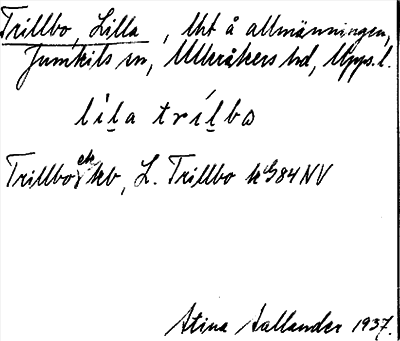 Trillbo, Lilla, lht å allmänningen,
Jumkils sn, Ulleråkers hd, Upps. l.
lìḻa tríḻbω
Trillbo ek kb, L. Trillbo k G84NV
Stina Sallander 1937.